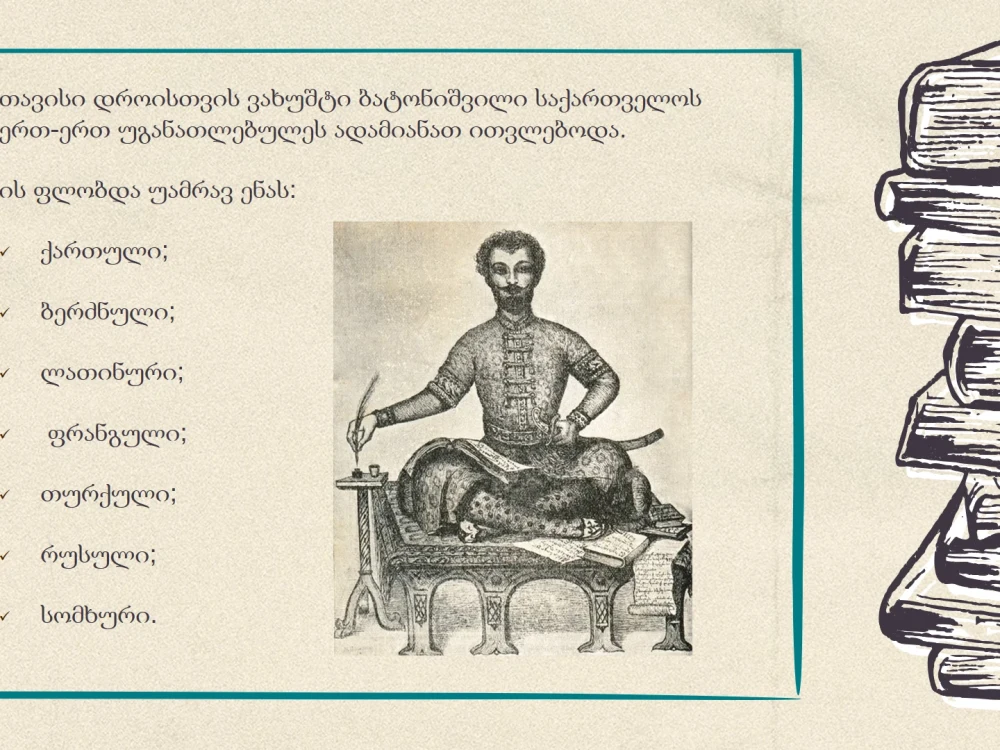 თავისი დროისთვის ვახუშტი ბატონიშვილი საქართველოს
ერთ-ერთ უგანათლებულეს ადამიანათ ითვლებოდა.
ის ფლობდა უამრავ ენას:
✓ ქართული;
✓ ბერძნული;
✓ ლათინური;
✓ ფრანგული;
✓ თურქული;
✓ რუსული;
✓ სომხური.